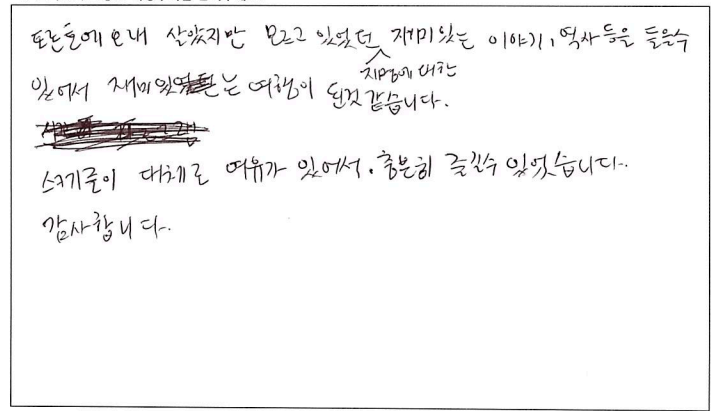 토론토에 오래 살았지만 모르고 있었던 재미있는 이야기, 역사 등을 들을수
지명에 대한
있어서 재미있는 여행이 된것 같습니다.
스케줄이 대체로 여유가 있어서. 충분히 즐길수 있었습니다.
감사합니다.